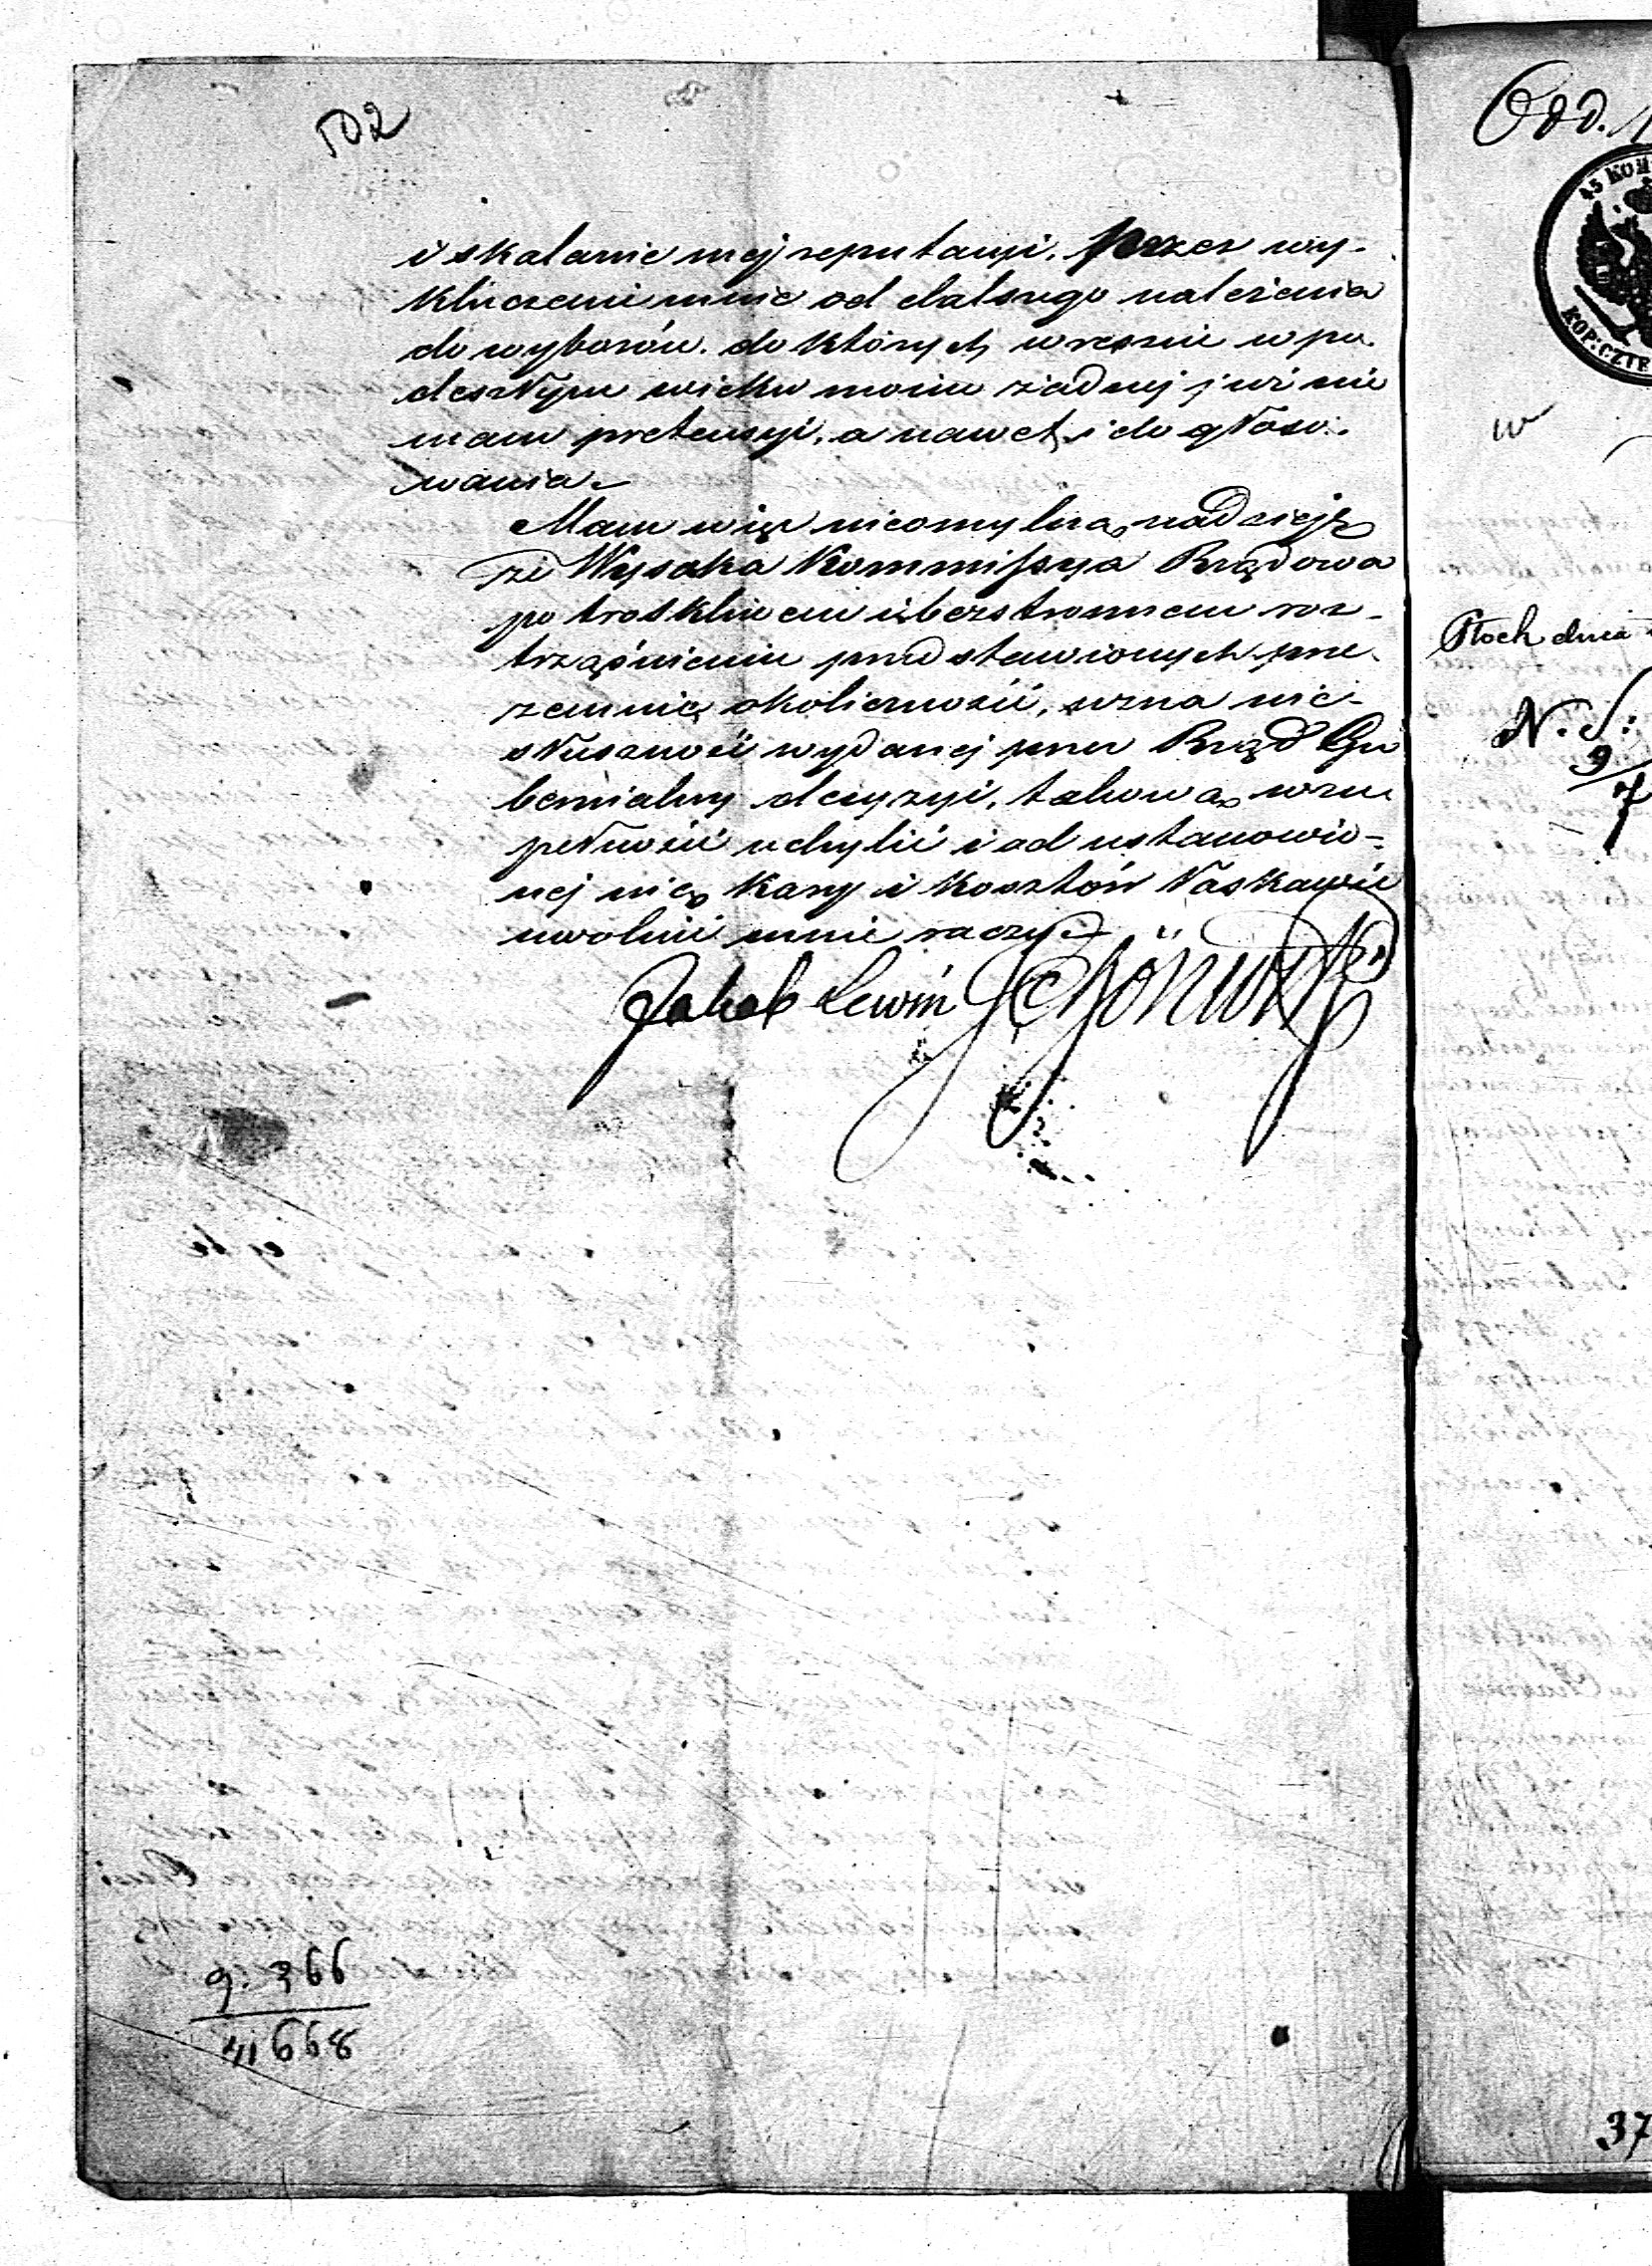 102
i skalanie mej reputacyi, przez wy-
kluczenie mnie od dalszego należenia
do wyborów, do których wreszcie w po-
deszłym wieku moim żadnej już nie
mam pretensyi, a nawet i do głoso-
wania.
Mam więc nieomylną nadzieję
że Wysoka Kommissya Rządowa
po troskliwem i bezstronnem roz-
trząśnieniu przedstawionych prze-
zemnie okoliczności, uzna nie-
słuszność wydanej przez Rząd Gu
bernialny decyzyi, takową w zu
pełności uchylić i od ustanowio-
nej nią kary i kosztów łaskawie
uwolnić mnie raczy.
Jakob Lewin
9. 366
41668
Odd.
45 KO
KOP: CZTE
w
Płock dnia
N. S:
9
37